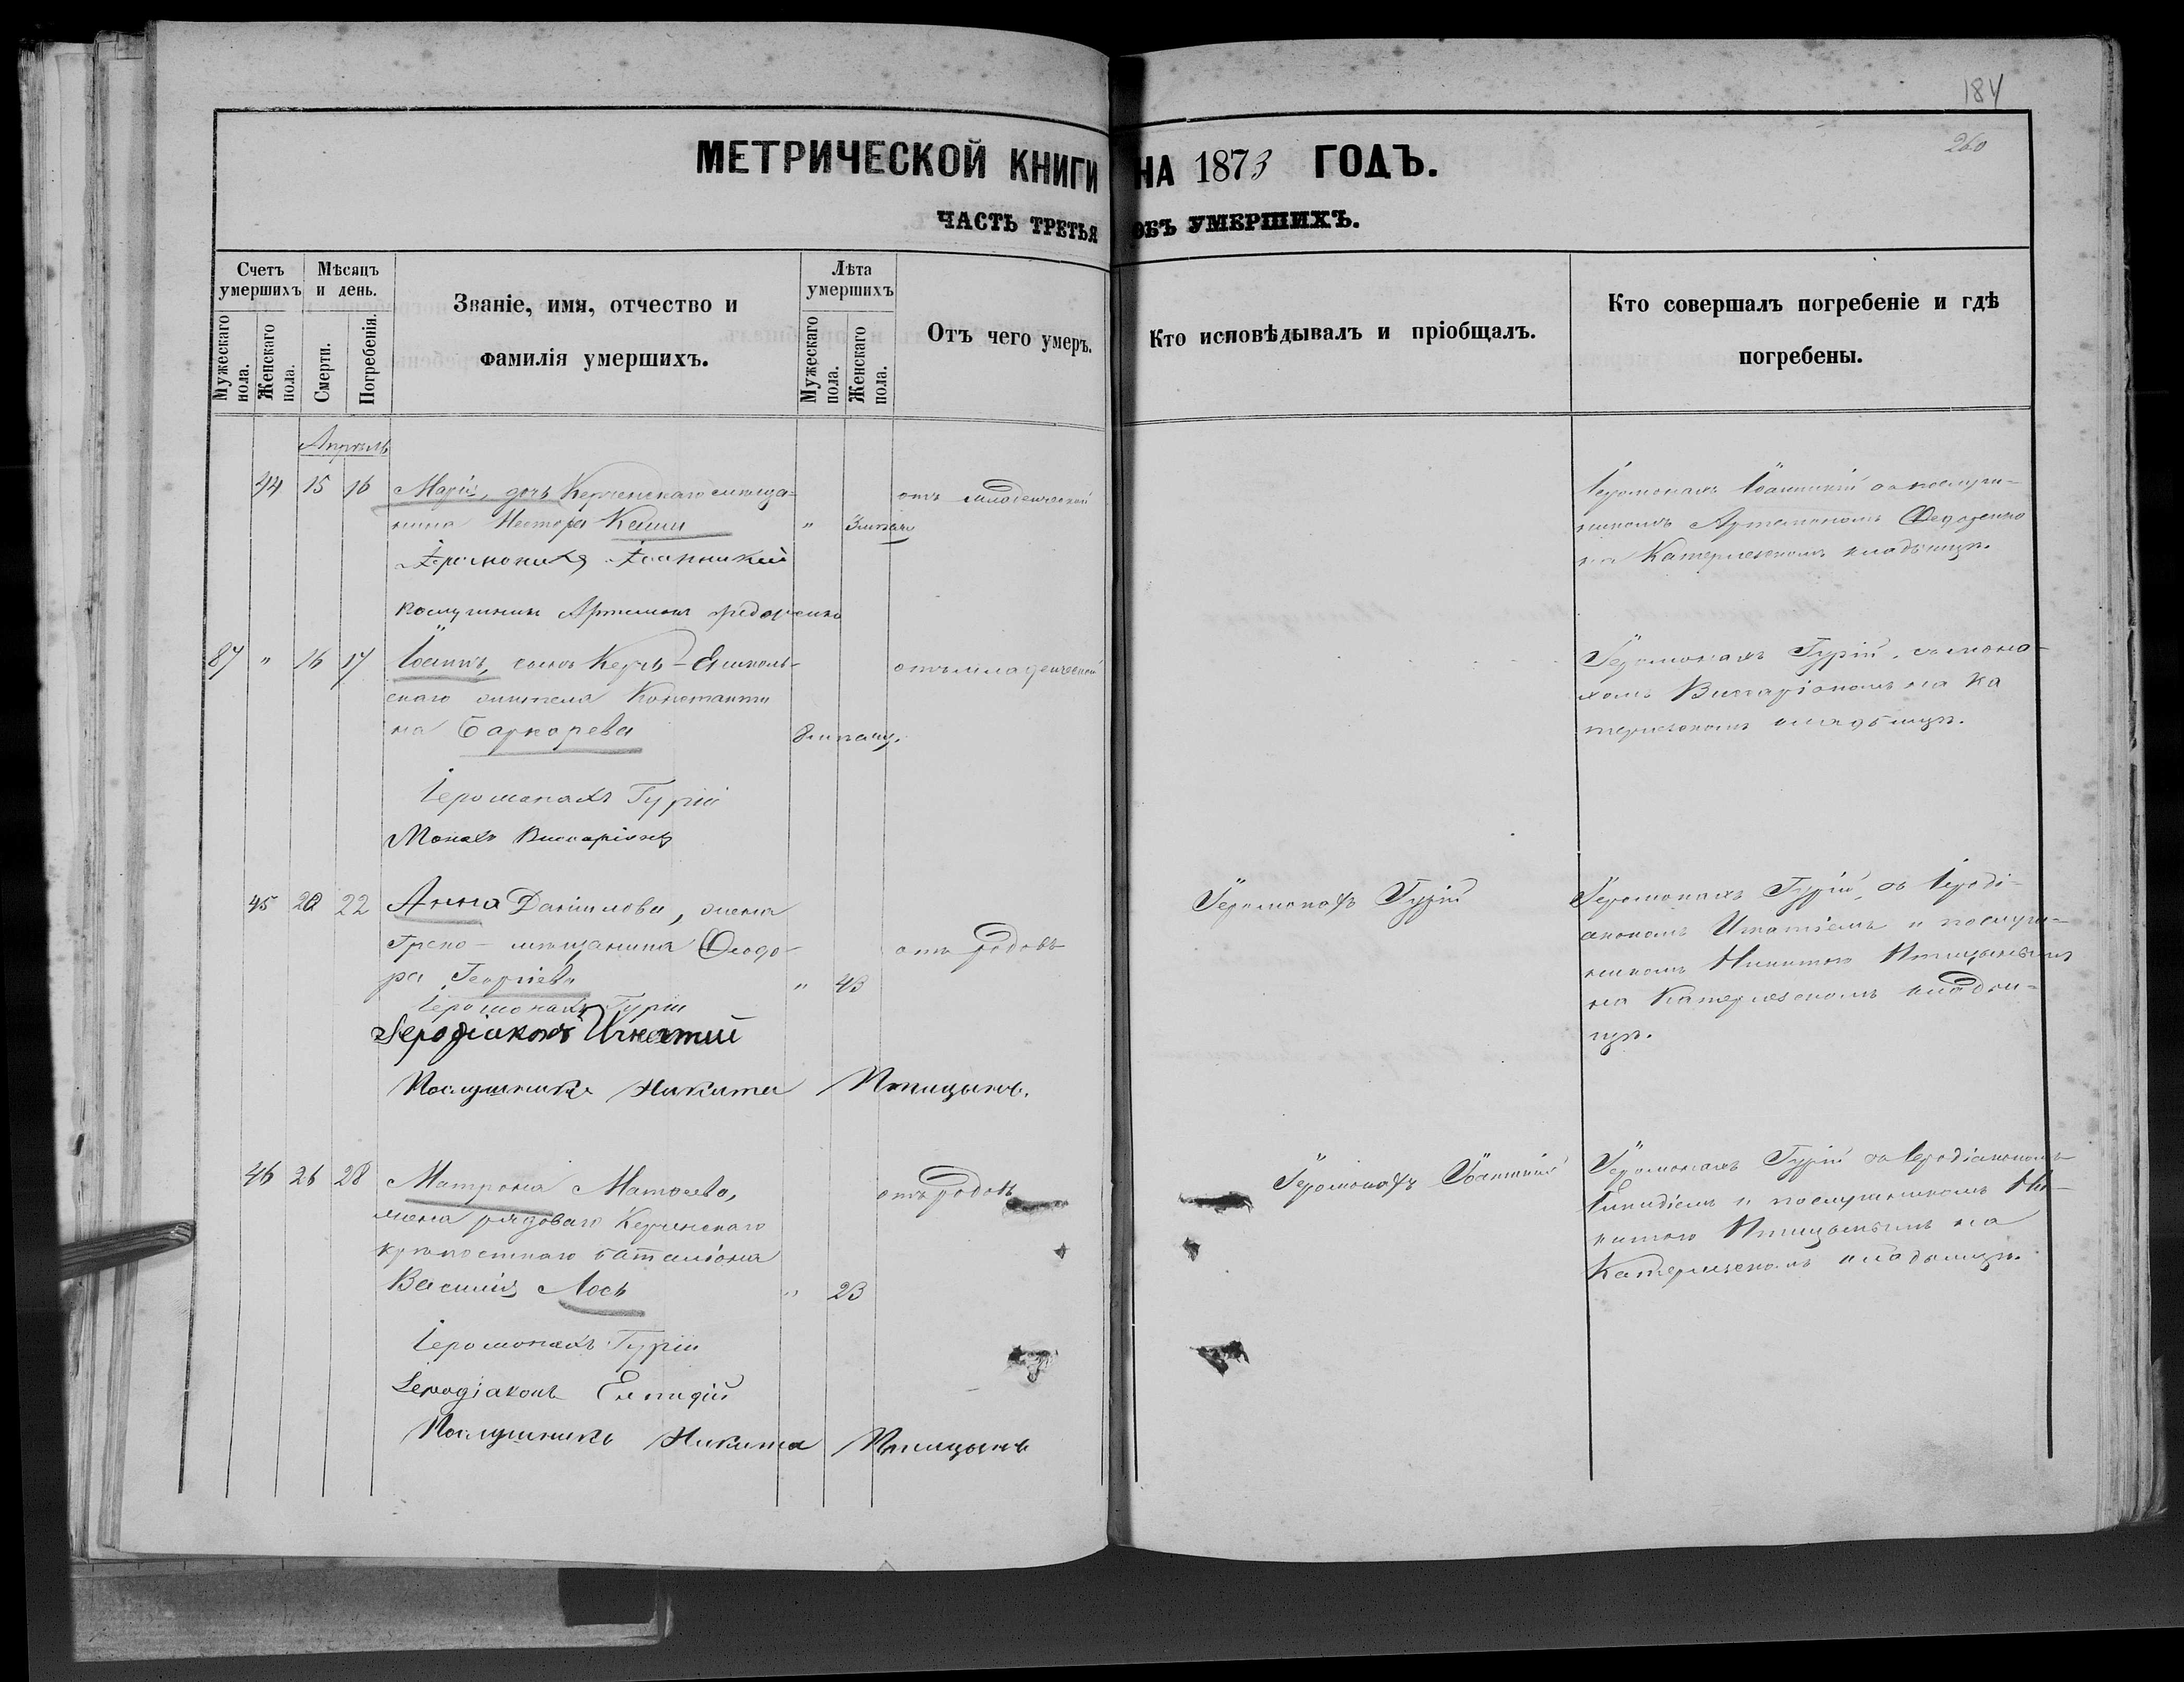 184
260
МЕТРИЧЕСКОЙ КНИГИ НА 1873 ГОДЪ.
ЧАСТЬ ТРЕТЬЯ ОБЪ УМЕРШИХЪ.
Счетъ умершихъ
Мужескаго пола.
Женскаго пола.
Мѣсяцъ и день.
Смерти.
Погребенія.
Званіе, имя, отчество и
фамилія умершихъ.
Лѣта умершихъ
Мужескаго пола.
Женскаго пола.
Отъ чего умеръ.
Кто исповѣдывалъ и пріобщалъ.
Кто совершалъ погребеніе и гдѣ
погребены.
Апрѣль
44 15 16 Марія, дочь Керченскаго мѣща-
нина Нестора
" 3
отъ младенческой
Іеромонахъ Іоанникій съ послуш-
никомъ Артемономъ Федоренко
на Катерлезскомъ кладбищѣ.
Іеромонахъ Іоанникій
послушникъ Артемонъ Федоренко
87 " 16 17 Іоаннъ, сынъ Керчь-Ениколь-
скаго жителя Константи
на
8 мѣсяц.
отъ младенческой
Іеромонахъ Гурій, съ мона-
хомъ Виссаріономъ на Ка
терлезскомъ кладбищѣ.
Іеромонахъ Гурій
Монахъ Виссаріонъ
45 20 22 Анна Даніилова, жена
Греко-мѣщанина Ѳеодо-
ра Георгіева
" 43
отъ родовъ
Іеромонахъ Гурій
Іеромонахъ Гурій, съ Іероді-
акономъ Игнатіемъ и послуш-
никомъ Никитою Птицынымъ
на Катерлезскомъ кладби-
щѣ.
Іеромонахъ Гурій
Іеродіаконъ Игнатий
Послушникъ Никита Птицынъ.
46 26 28 Матрона Матѳеева,
жена рядоваго Керченскаго
крѣпостнаго баталіона
Василія Лось
" 23
отъ родовъ
Іеромонахъ Іоанникій
Іеромонахъ Гурій съ Іеродіакономъ
Елпидіемъ и послушникомъ Ни-
китою Птицынымъ на
Катерлезскомъ кладбищѣ.
Іеромонахъ Гурій
Іеродіаконъ Елпидій
Послушникъ Никита Птицынъ